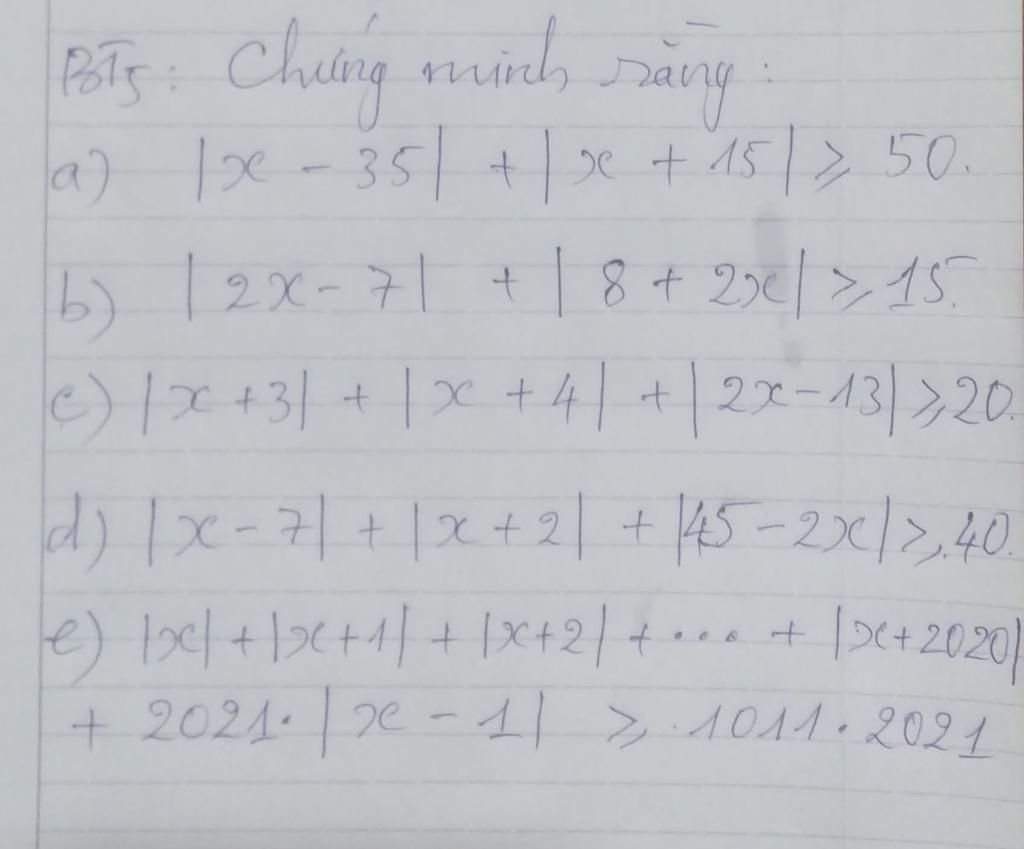 BT5: Chứng minh rằng:
a) |x - 35| + |x + 15| ⩾ 50.
b) |2x - 7| + |8 + 2x| ⩾ 15.
c) |x + 3| + |x + 4| + |2x - 13| ⩾ 20.
d) |x - 7| + |x + 2| + |45 - 2x| ⩾ 40.
e) |x| + |x + 1| + |x + 2| + ... + |x + 2020|
+ 2021 . |x - 1| ⩾ 1011 . 2021